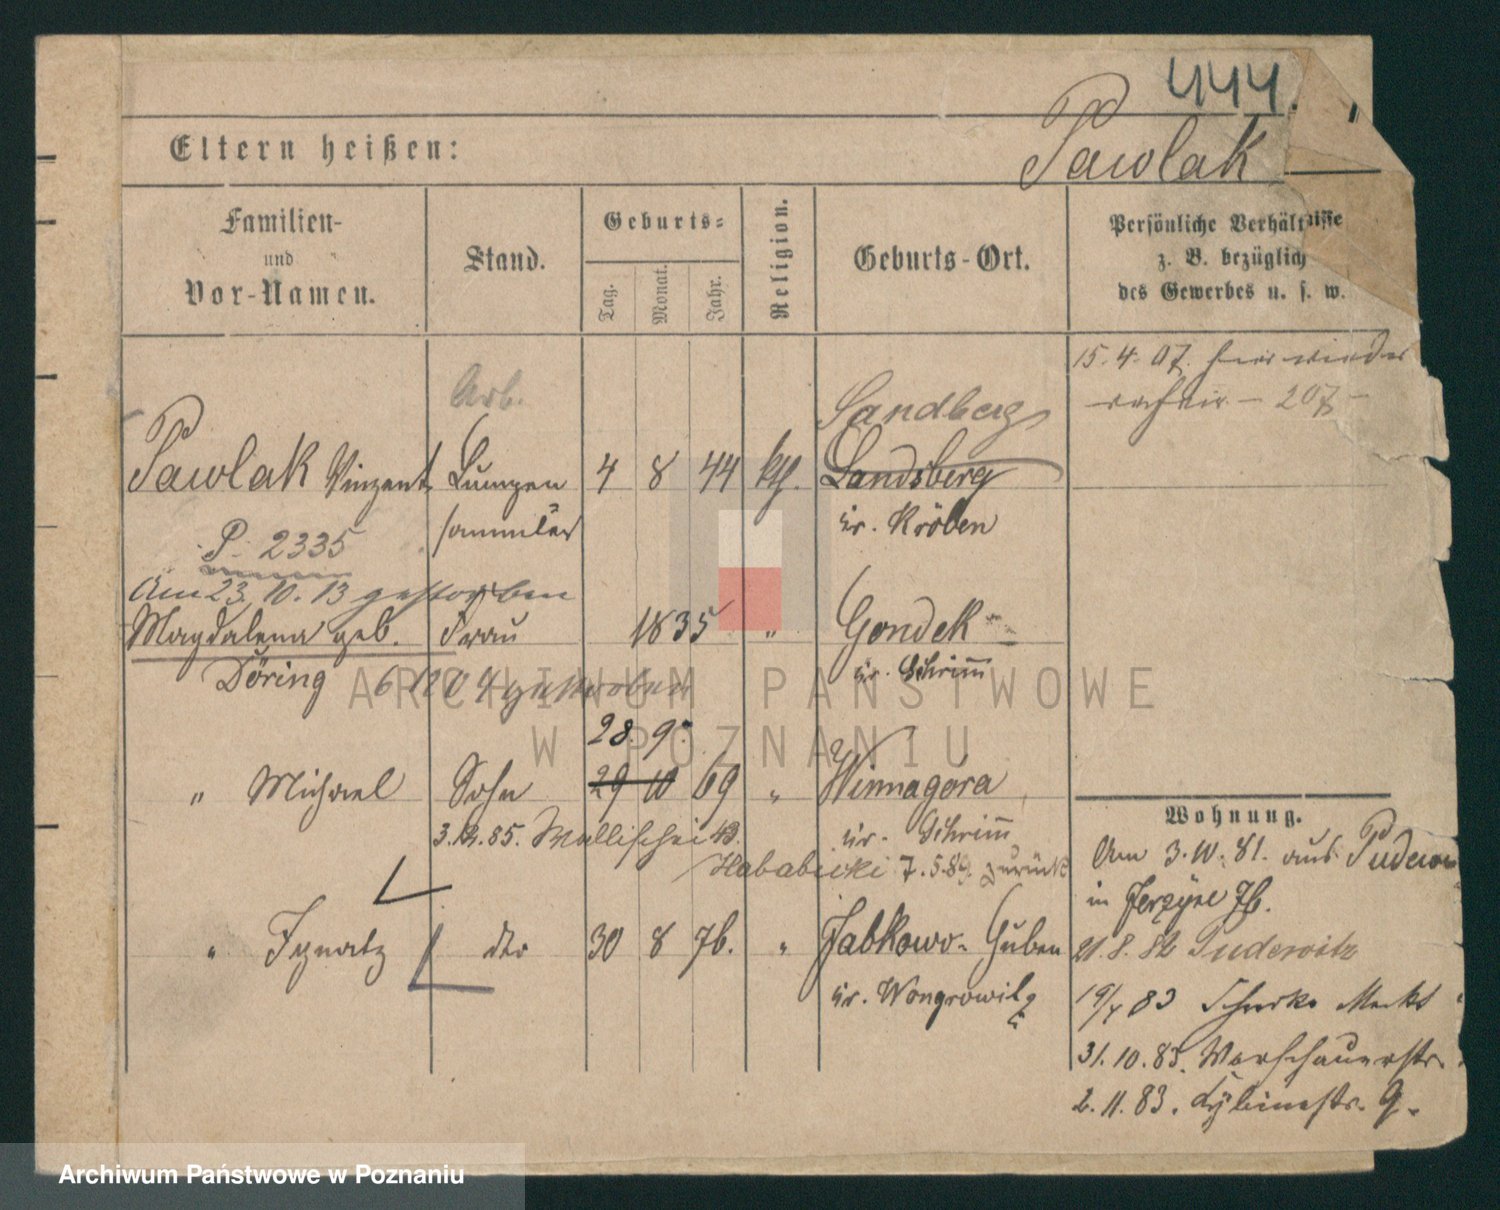 444.
Eltern heißen:
Pawlak
Familien-
und
Vor-Namen.
Stand.
Geburts-
Tag.
Monat.
Jahr.
Religion.
Geburts-Ort.
Persönliche Verhältnisse
z. B. bezüglich
des Gewerbes u. s. w.
15. 4. 07 hier wieder
207
Arb.
Sandberg
Pawlak Vinzent Lumpen 4 8 44 kth. Landsberg
sammler Kr. Kröben
P. 2335
Am 23. 10. 13 gestorben
Magdalena geb. Frau 1835 " Gondek
Döring gestorben Kr. Schrimm
28. 9.
" Michael Sohn 29 10 69 " Winnagora
3. 12. 85. Wallischei 43. Kr. Schrimm
7. 5. 89. zurück
" Ignatz dto 30 8 76. " Jabkowo- Guben
Kr. Wongrowitz
Wohnung.
Am 3. 10. 81. aus Pudewitz
in Jerzyce 76.
21. 8. 82 Pudewitz
83
31. 10. 83. Warschauerstr.
2. 11. 83. Cybinastr. 9.
ARCHIWUM PAŃSTWOWE
W POZNANIU
Archiwum Państwowe w Poznaniu